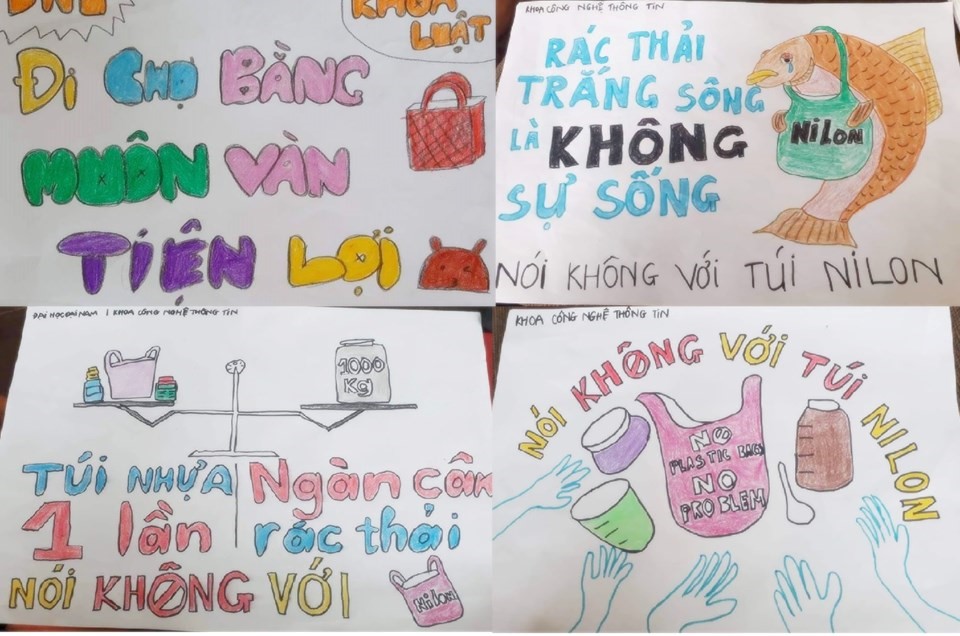 DNU
KHOA
LUẬT
Đi CHỢ BẰNG
MUÔN VÀN
TIỆN LỢI
KHOA CÔNG NGHỆ THÔNG TIN
RÁC THẢI
TRẮNG SÔNG
LÀ KHÔNG
SỰ SỐNG
NiLON
NÓI KHÔNG VỚI TÚI NILON
ĐẠI HỌC ĐẠI NAM | KHOA CÔNG NGHỆ THÔNG TIN
1000
Kg
TÚI NHỰA
1 lần
Ngàn cân
rác thải
NÓI KHÔNG VỚI
NiLON
KHOA CÔNG NGHỆ THÔNG TIN
NÓI KHÔNG VỚI TÚI NILON
NO
PLASTIC BAGS
NO
PROBLEM